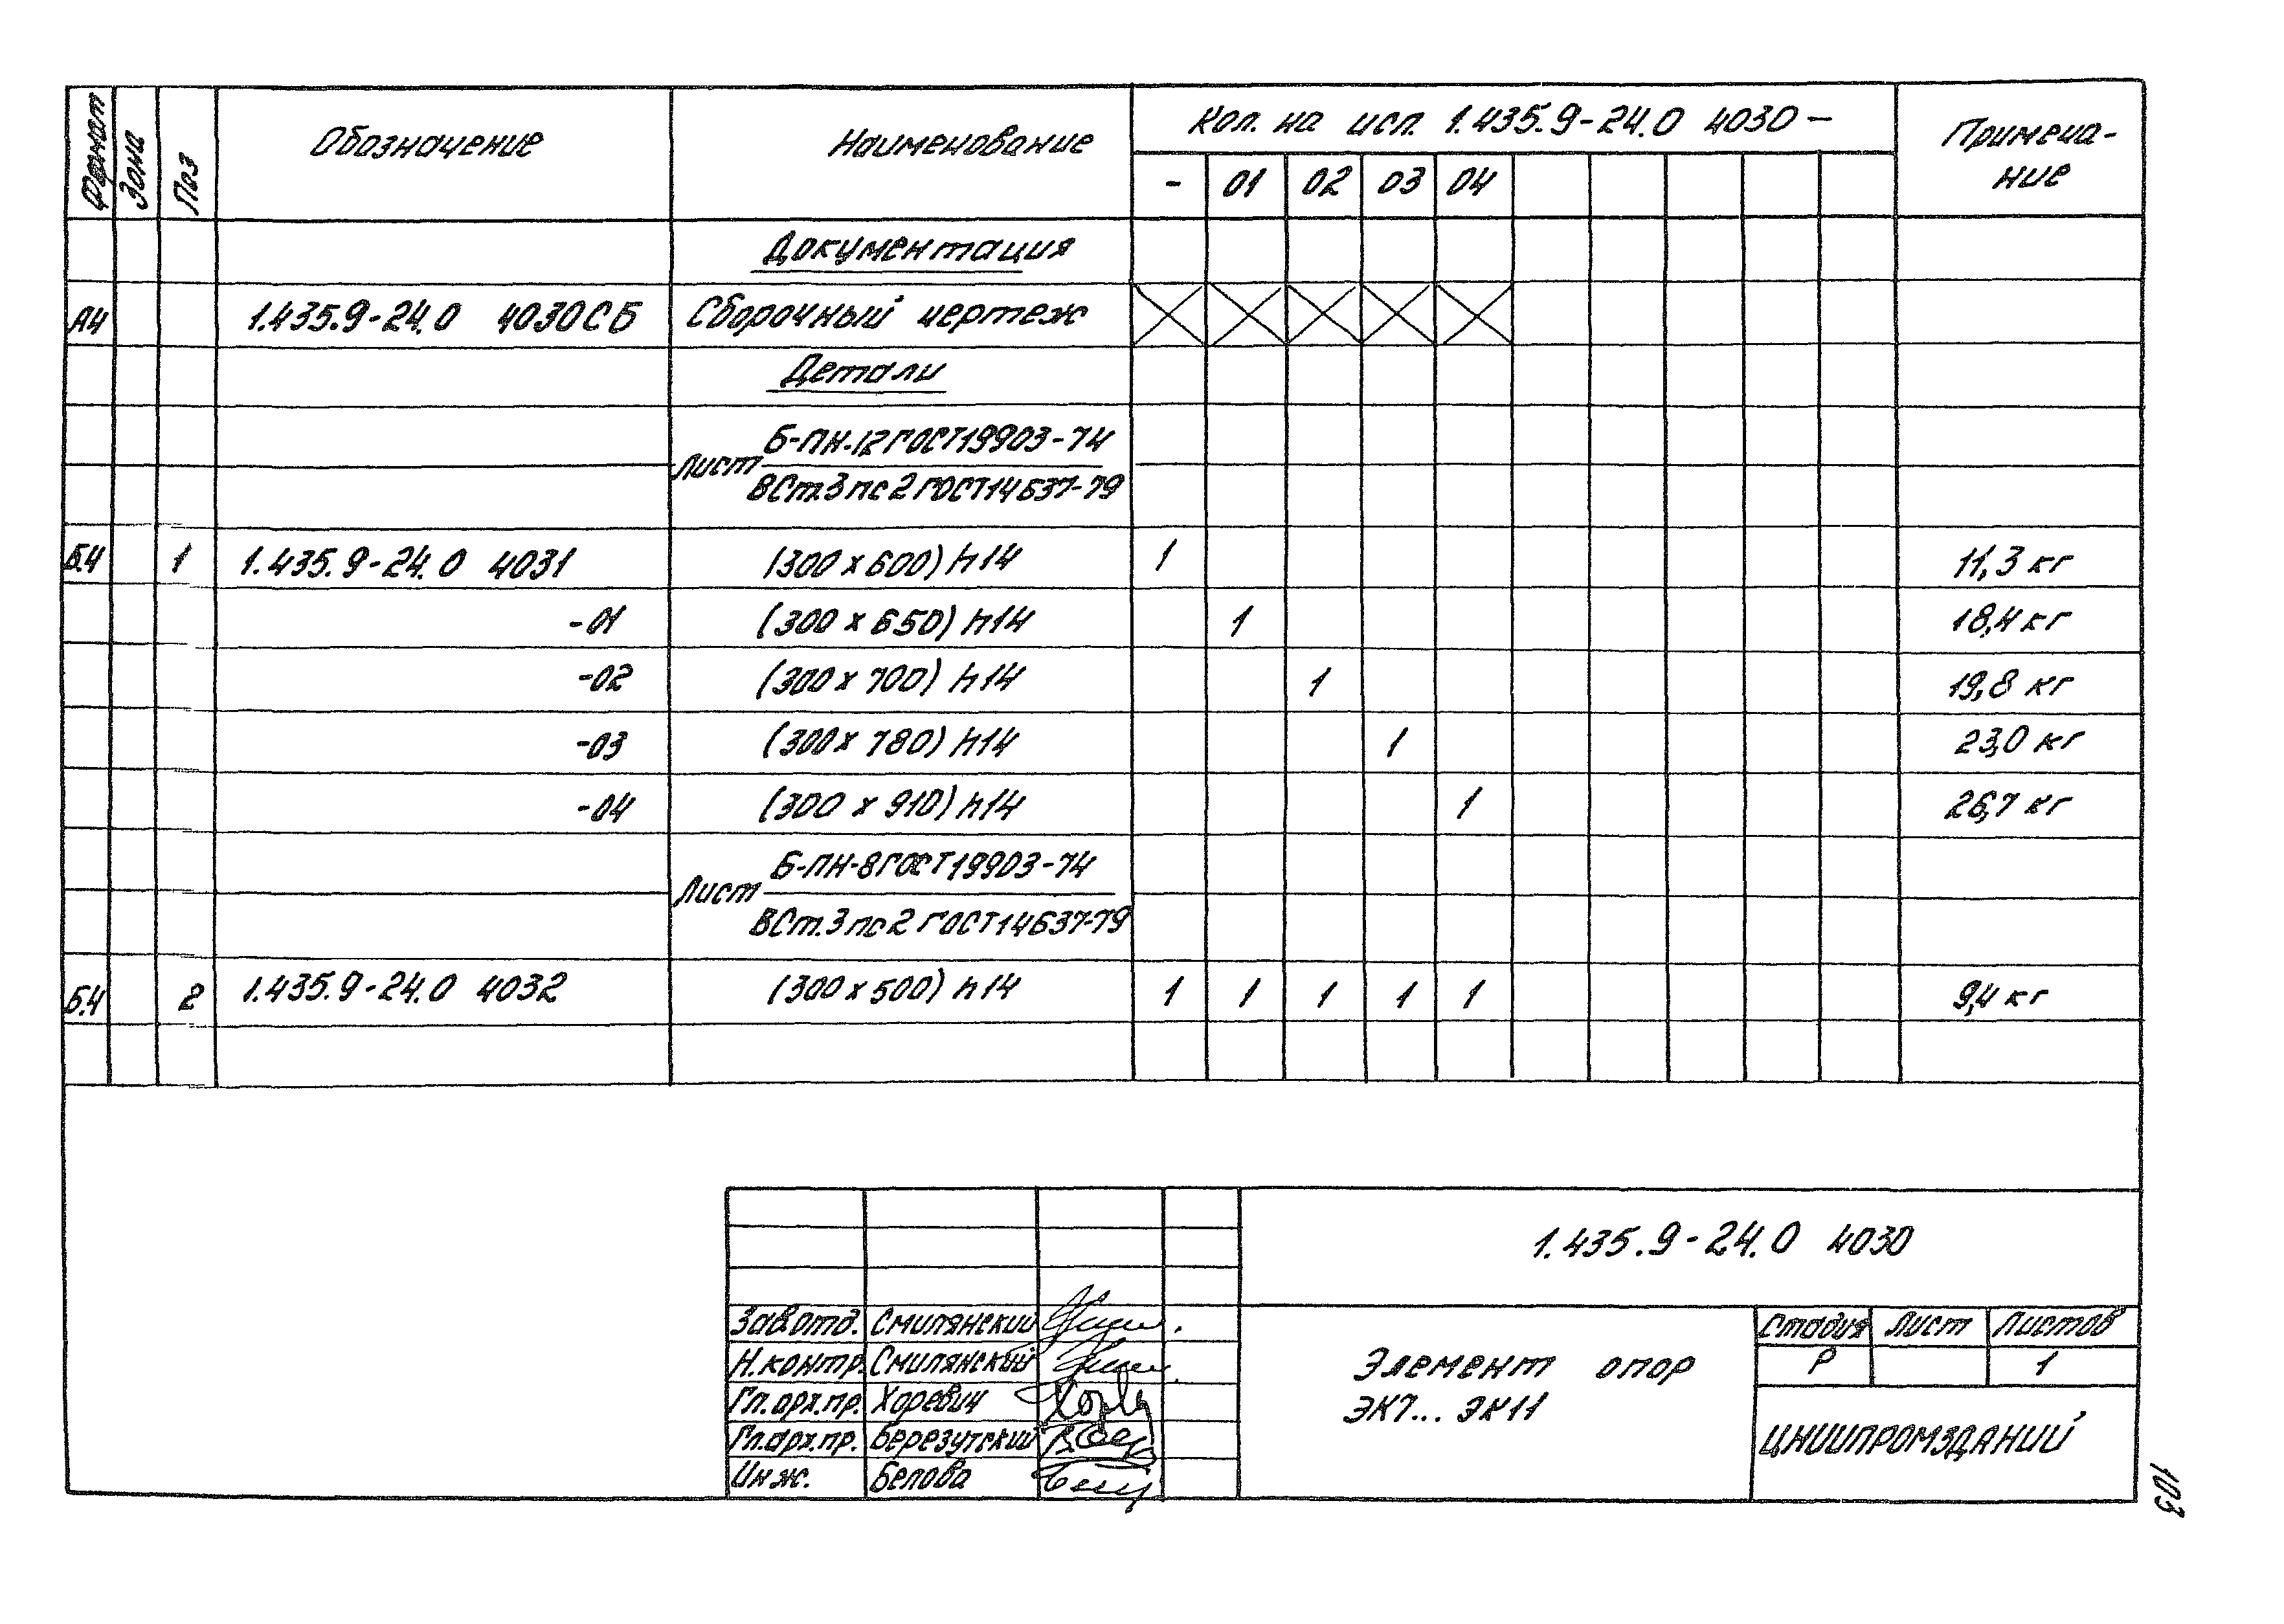 Формат Зона Поз Обозначение Наименование Кол. на исп. 1.435.9-24.0 4030 — Примеча-
ние
- 01 02 03 04
Документация
А4 1.435.9-24.0 4030СБ Сборочный чертеж
Детали
Лист Б-ПН-12 ГОСТ 19903-74
ВСт.3пс2 ГОСТ 14637-79
Б.Ч 1 1.435.9-24.0 4031 (300 х 600) h14 1 11,3 кг
-01 (300 х 650) h14 1 18,4 кг
-02 (300 х 700) h14 1 19,8 кг
-03 (300 х 780) h14 1 23,0 кг
-04 (300 х 910) h14 1 26,7 кг
Лист Б-ПН-8 ГОСТ 19903-74
ВСт.3пс2 ГОСТ 14637-79
Б.Ч 2 1.435.9-24.0 4032 (300 х 500) h14 1 1 1 1 1 9,4 кг
1.435.9-24.0 4030
Зав.отд. Смилянский
Н.контр. Смилянский
Гл.арх.пр. Хоревич
Гл.арх.пр. Березутский
Инж. Белова
Элемент опор
ЭК7... ЭК11
Стадия Лист Листов
Р 1
ЦНИИПРОМЗДАНИЙ
103